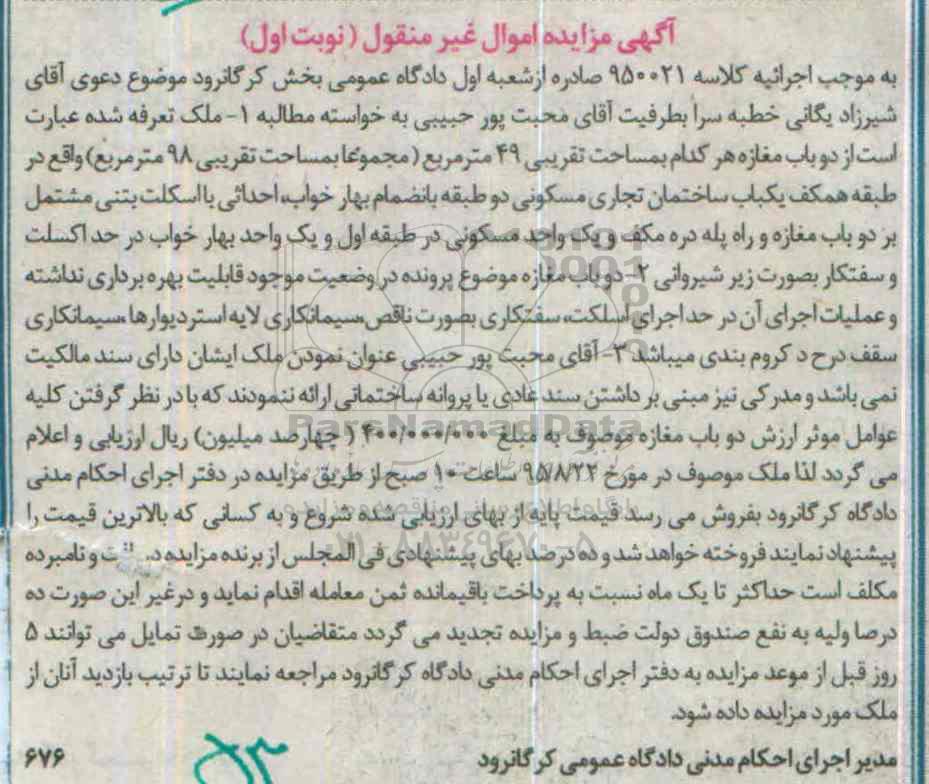 آگهی مزایده اموال غیر منقول (نوبت اول)
به موجب اجرائیه کلاسه ۹۵۰۰۲۱ صادره ازشعبه اول دادگاه عمومی بخش کرگانرود موضوع دعوی آقای
شیرزاد یگانی خطبه سرا بطرفیت آقای محبت پور حبیبی به خواسته مطالبه ۱- ملک تعرفه شده عبارت
است از دو باب مغازه هر کدام بمساحت تقریبی ۴۹ مترمربع (مجموعا بمساحت تقریبی ۹۸ مترمربع) واقع در
طبقه همکف یکباب ساختمان تجاری مسکونی دو طبقه بانضمام بهار خواب، احداثی با اسکلت بتنی مشتمل
بر دو باب مغازه و راه پله دره مکف و یک واحد مسکونی در طبقه اول و یک واحد بهار خواب در حد اکسلت
و سفتکار بصورت زیر شیروانی ۲- دو باب مغازه موضوع پرونده در وضعیت موجود قابلیت بهره برداری نداشته
و عملیات اجرای آن در حد اجرای اسلکت، سفتکاری بصورت ناقص، سیمانکاری لایه استر دیوارها، سیمانکاری
سقف درح د کروم بندی میباشد ۳- آقای محبت پور حبیبی عنوان نمودن ملک ایشان دارای سند مالکیت
نمی باشد و مدرکی نیز مبنی بر داشتن سند عادی یا پروانه ساختمانی ارائه ننمودند که با در نظر گرفتن کلیه
عوامل موثر ارزش دو باب مغازه موصوف به مبلغ ۴۰۰/۰۰۰/۰۰۰ (چهارصد میلیون) ریال ارزیابی و اعلام
می گردد لذا ملک موصوف در مورخ ۹۵/۸/۲۲ ساعت ۱۰ صبح از طریق مزایده در دفتر اجرای احکام مدنی
دادگاه کرگانرود بفروش می رسد قیمت پایه از بهای ارزیابی شده شروع و به کسانی که بالاترین قیمت را
پیشنهاد نمایند فروخته خواهد شد و ده درصد بهای پیشنهادی فی المجلس از برنده مزایده و نامبرده
مکلف است حداکثر تا یک ماه نسبت به پرداخت باقیمانده ثمن معامله اقدام نماید و درغیر این صورت ده
درصا ولیه به نفع صندوق دولت ضبط و مزایده تجدید می گردد متقاضیان در صورت تمایل می توانند ۵
روز قبل از موعد مزایده به دفتر اجرای احکام مدنی دادگاه کرگانرود مراجعه نمایند تا ترتیب بازدید آنان از
ملک مورد مزایده داده شود.
مدیر اجرای احکام مدنی دادگاه عمومی کرگانرود
۶۷۶
ParsNamadData
۰۲۱-۸۸۳۴۹۶۷۰-۵